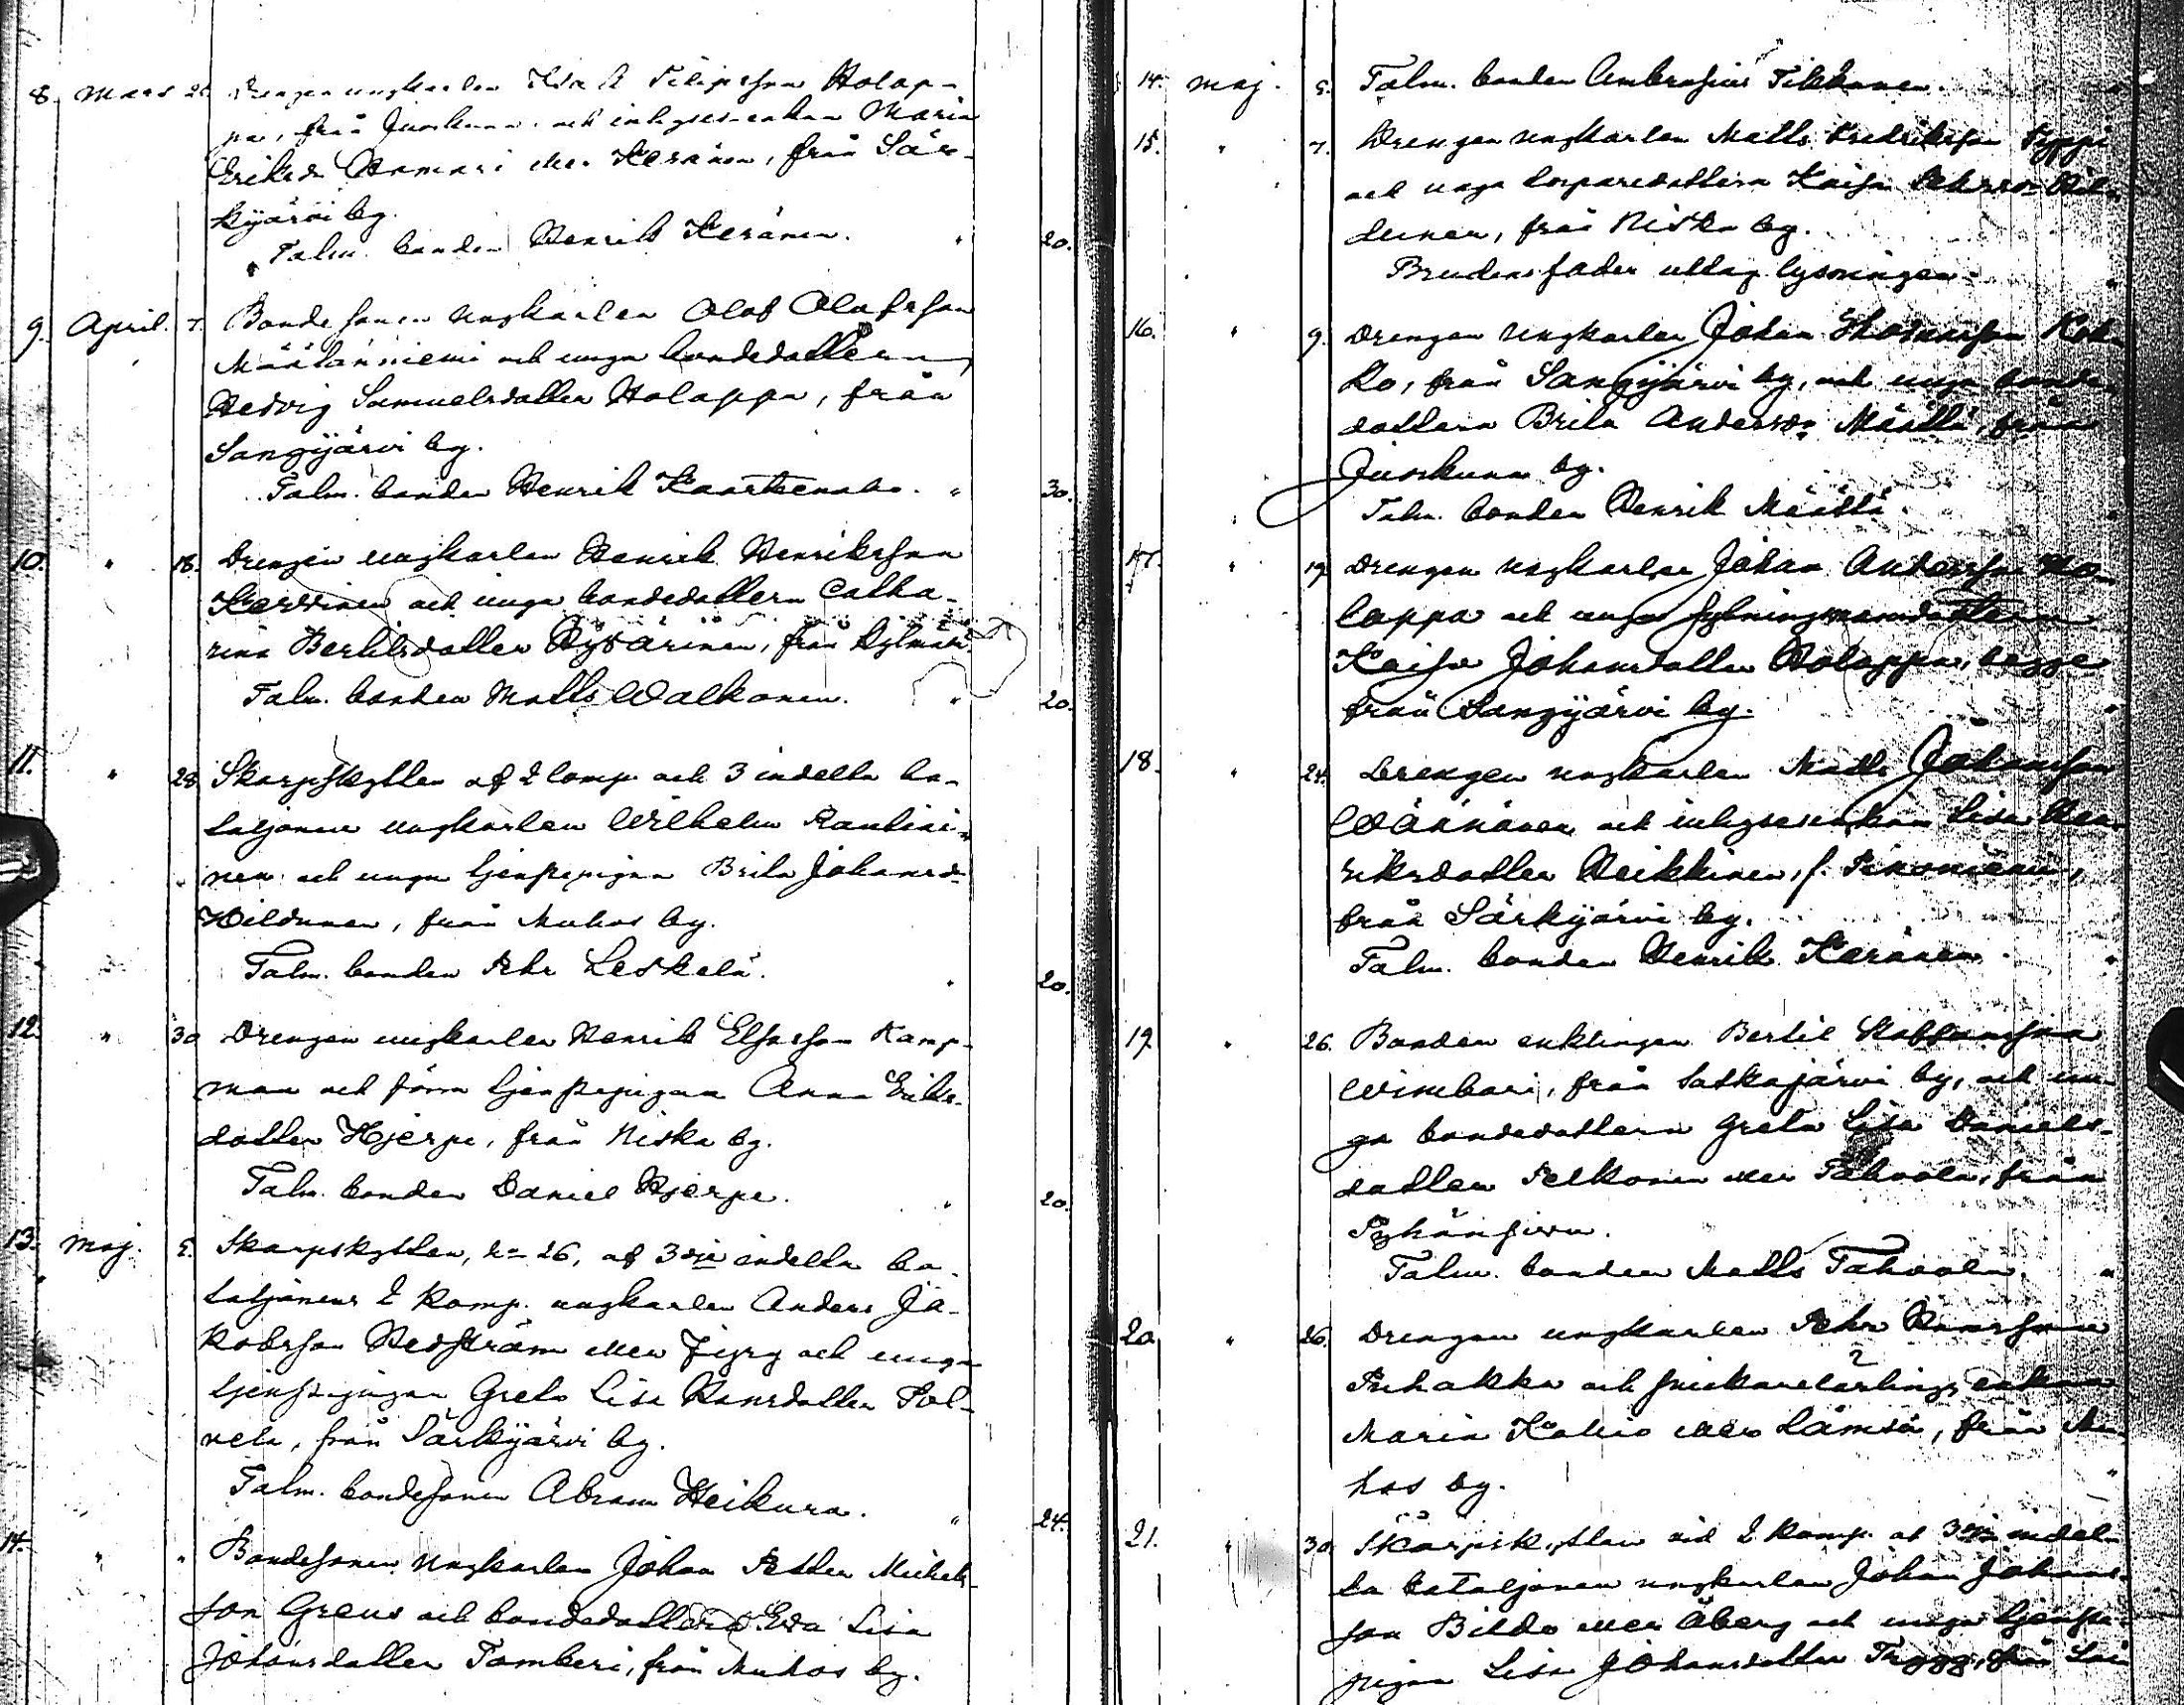 8. Mars 21. Drengen ungkarlen Isak Filipsson Holap-
pa, från Juorkuna och inhyses-enkan Maria
Eriksdr Hamari eller Keränen, från Sär-
kijärvi by.
Talm. bonden Henrik Keränen. " 20.
9. April. 7. Bondesonen ungkarlen Olof Olofsson
Määtänniemi och unga bondedottern
Hedvig Samuelsdotter Holappa, från
Sangijärvi by.
Talm. bonden Henrik Kaartenaho. " 30.
10. " 18. Drengen ungkarlen Henrik Henriksson
Karvinen och unga bondedottern Catha-
rina Bertilsdotter Hyvärinen, från Kylmälä
Talm. bonden Matts Walkonen. " 20.
11. " 28. Skarpskytten af 2 comp. och 3 indelta ba-
taljonen ungkarlen Wilhelm Rautiai-
nen och unga tjenstepigan Brita Johansdr
Hildunen, från Muhos by.
Talm. bonden Pehr Leskelä. " 20.
12. " 30 Drengen ungkarlen Henrik Elsasson Kamp-
man och förra tjenstepigan Anna Eriks-
dotter Hjerpe, från Niska by.
Talm. bonden Daniel Hjerpe. " 20.
13. Maj. 5. Skarpskytten, No 26, af 3dje indelta ba-
taljonens 2 komp. ungkarlen Anders Ja-
kobsson Hedström eller Fyrg och unga
tjenstepigan Greta Lisa Hansdotter Pal-
vela, från Särkijärvi by.
Talm. bondesonen Abram Heikura. " 24.
14. " " Bondesonen ungkarlen Johan Petter Michels-
son Greus och bondedottern Eva Lisa
Johansdotter Tamberi, från Muhos by.
14. Maj. 5. Talm. bonden Ambrosius Tikkanen. "
15. " 7. Drengen ungkarlen Matts Fredriksson Pyppi
och unga torparedottern Kaisa Pehrsdr Hil-
dunen, från Niska by.
Brudens fader uttog lysningen. "
16. " 9. Drengen ungkarlen Johan Thomasson Kok-
ko, från Sangijärvi by, och unga bonde-
dottern Brita Andersdr Määttä, från
Juorkuna by.
Talm. bonden Henrik Määttä. "
17. " 19. Drengen ungkarlen Johan Andersson Ho-
lappa och unga fjerdingsmansdottern
Kaisa Johansdotter Holappa, begge
från Sangijärvi by. "
18. " 24. Drengen ungkarlen Matts Johansson
Wäänänen och inhysesenkan Lisa Hen-
riksdotter Heikkinen, f. Pikoniemi,
från Särkijärvi by.
Talm. bonden Henrik Keränen. "
19. " 26. Bonden enklingen Bertil Staffansson
Wimbari, från Laitasjärvi by, och un-
ga bondedottern Greta Lisa Daniels-
dotter Pelkonen eller Tahvola, från
Pyhänsivu.
Talm. bonden Matts Tahvola. "
20. " 26. Drengen ungkarlen Pehr Hansson
Puhakka och snickarelärlings enkan
Maria Kakio eller Lämsä, från Mu-
hos by. "
21. " 30. Skarpskytten vid 2 komp. af 3dje indel-
ta bataljonen ungkarlen Johan Johans-
son Bilde eller Åberg och unga tjenste-
pigan Lisa Johansdotter Trygg, från Lai